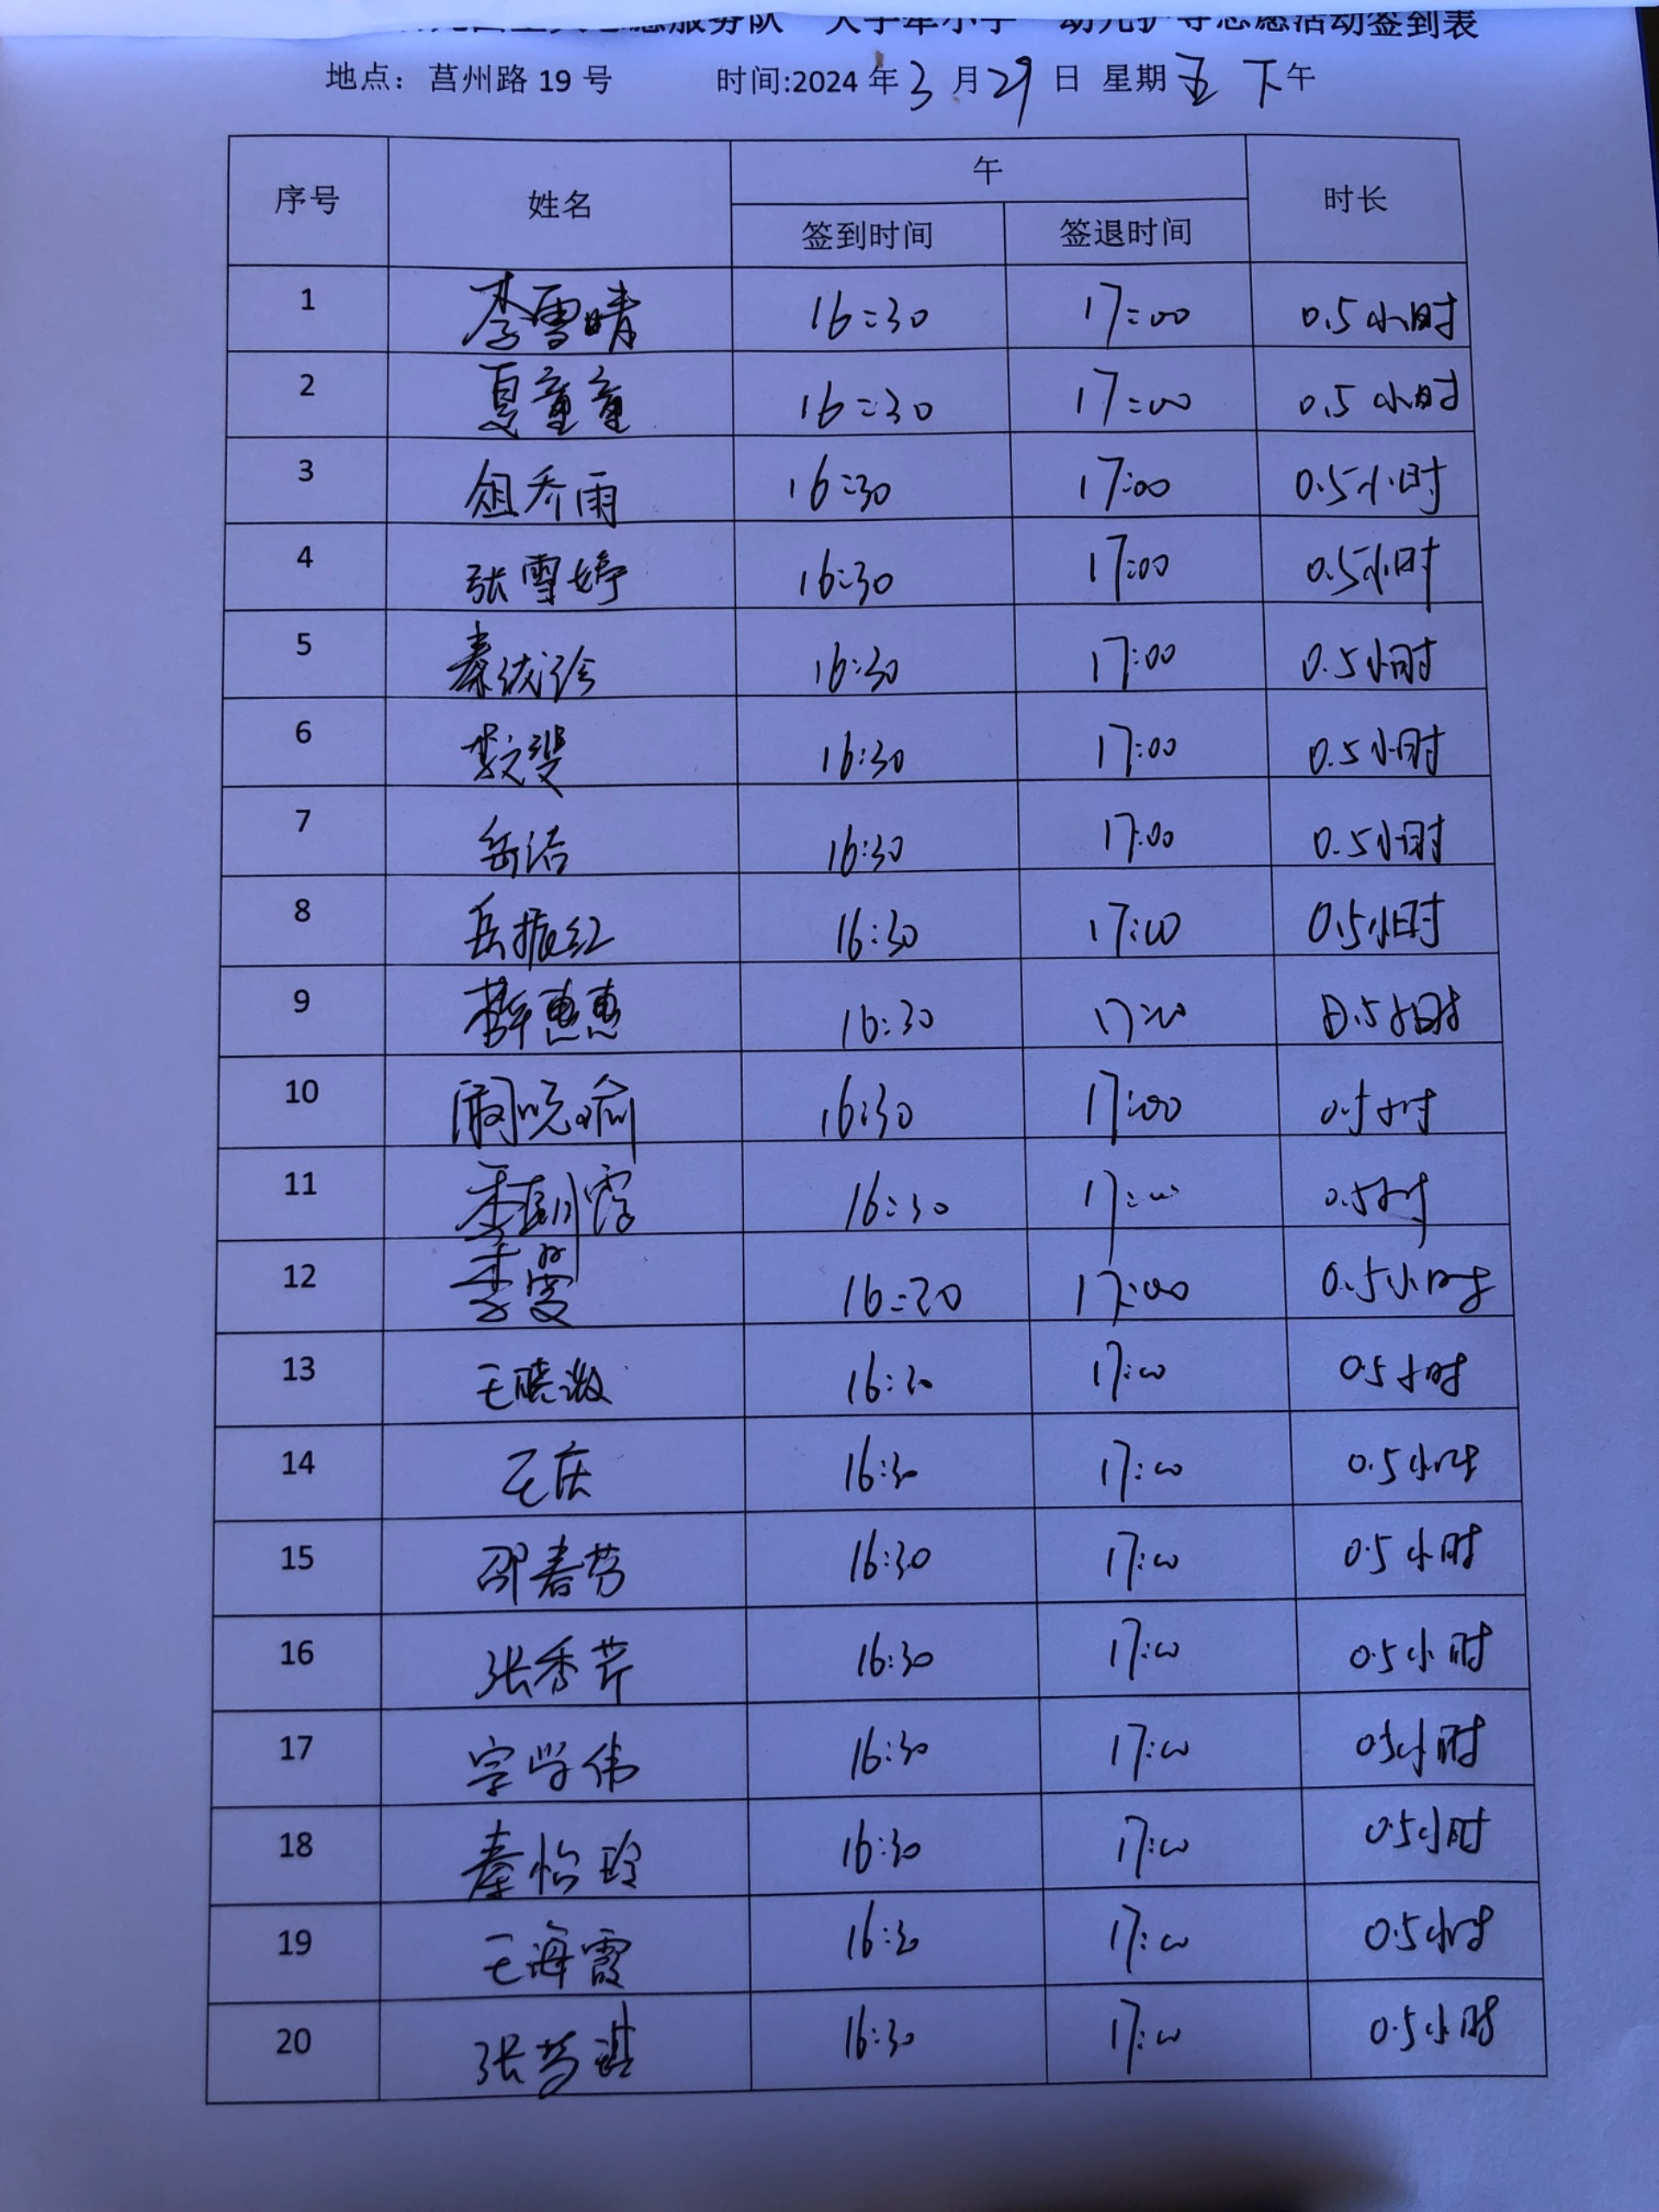 志愿服务队"大手牵小手"幼儿护导志愿活动签到表
地点：莒州路19号 时间:2024年3月29日 星期五 下午
序号 姓名 午 时长
签到时间 签退时间
1 李雪晴 16:30 17:00 0.5小时
2 夏童童 16:30 17:00 0.5小时
3 俎乔雨 16:30 17:00 0.5小时
4 张雪婷 16:30 17:00 0.5小时
5 秦依诊 16:30 17:00 0.5小时
6 16:30 17:00 0.5小时
7 岳洁 16:30 17:00 0.5小时
8 岳振红 16:30 17:00 0.5小时
9 薛惠惠 16:30 17:00 0.5小时
10 16:30 17:00 0.5小时
11 16:30 17:00 0.5小时
12 李雯 16:30 17:00 0.5小时
13 王晓淑 16:30 17:00 0.5小时
14 王庆 16:30 17:00 0.5小时
15 邵春芳 16:30 17:00 0.5小时
16 张秀芹 16:30 17:00 0.5小时
17 宗学伟 16:30 17:00 0.5小时
18 秦怡玲 16:30 17:00 0.5小时
19 王海霞 16:30 17:00 0.5小时
20 张梦琪 16:30 17:00 0.5小时